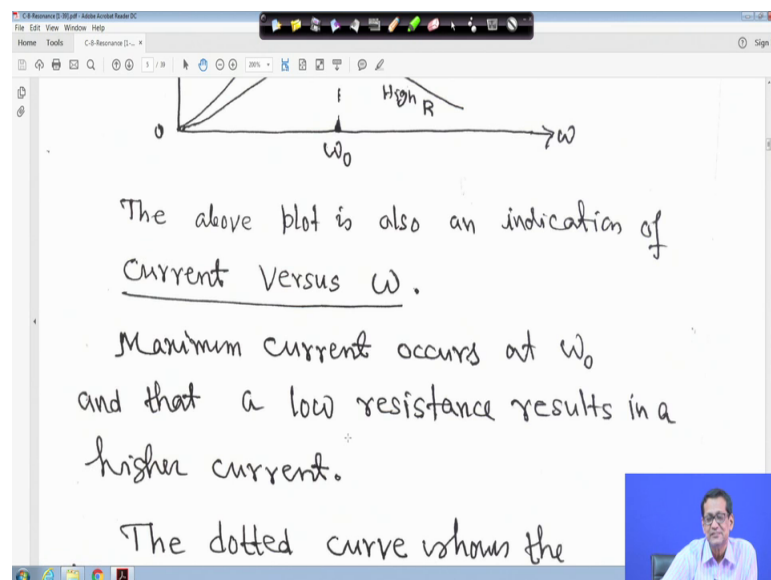 C-8-Resonance [1-39].pdf - Adobe Acrobat Reader DC
File Edit View Window Help
Home Tools C-8-Resonance [1-... × Sign
5 / 39 200%
High R
0 ω
ω₀
The above plot is also an indication of
Current Versus ω.
Maximum current occurs at ω₀
and that a low resistance results in a
higher current.
The dotted curve shows the